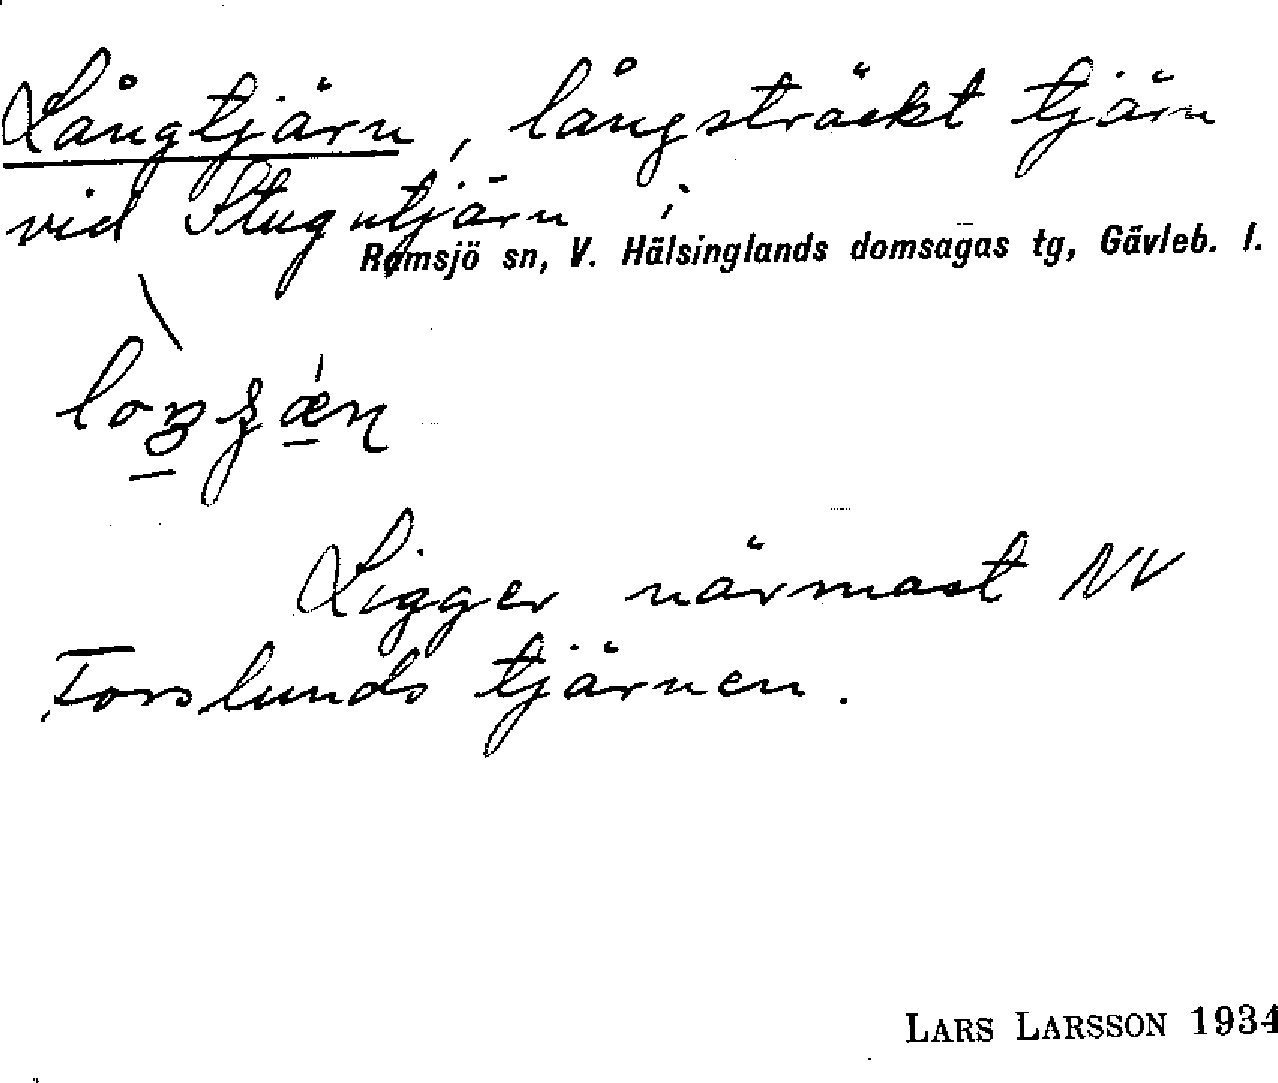 Långtjärn, långsträckt tjärn
vid Stugutjärn i
Ramsjö sn, V. Hälsinglands domsagas tg, Gävleb. l.
Ligger närmast NV
Forslunds tjärnen.
LARS LARSSON 1934